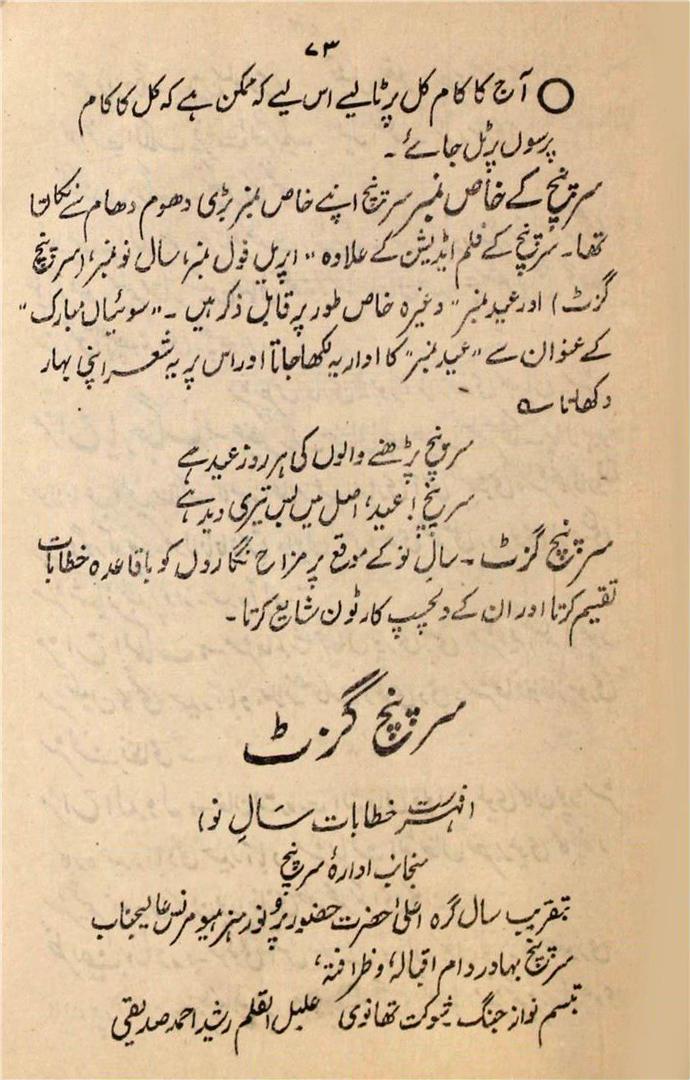 ۷۳
○ آج کا کام کل پر ٹالیے اس لیے کہ ممکن ہے کہ کل کا کام
پرسوں پر ٹل جائے۔
سرپنچ کے خاص نمبر سرپنچ اپنے خاص نمبر بڑی دھوم دھام سے نکالتا
تھا۔ سرپنچ کے فلم ایڈیشن کے علاوہ "اپریل فول نمبر، سال نو نمبر، (سرپنچ
گزٹ) اور عید نمبر" وغیرہ خاص طور پر قابل ذکر ہیں۔ "سوئیاں مبارک"
کے عنوان سے "عید نمبر" کا اداریہ لکھا جاتا اور اس پر یہ شعر اپنی بہار
دکھاتا ؎
سرپنچ پڑھنے والوں کی ہر روز عید ہے
سرپنچ! عید، اصل میں بس تیری دید ہے
سرپنچ گزٹ۔ سالِ نو کے موقع پر مزاح نگاروں کو باقاعدہ خطابات
تقسیم کرتا اور ان کے دلچسپ کارٹون شایع کرتا۔
سرپنچ گزٹ
(فہرست خطابات سالِ نو)
منجانب ادارۂ سرپنچ
بتقریب سال گرہ اعلیٰ حضرت حضور پر نور ہنر ہیومرنس عالیجناب
سرپنچ بہادر دام اقبالہٗ و ظرافتہٗ،
تبسم نواز جنگ شوکت تھانوی علیل القلم رشید احمد صدیقی